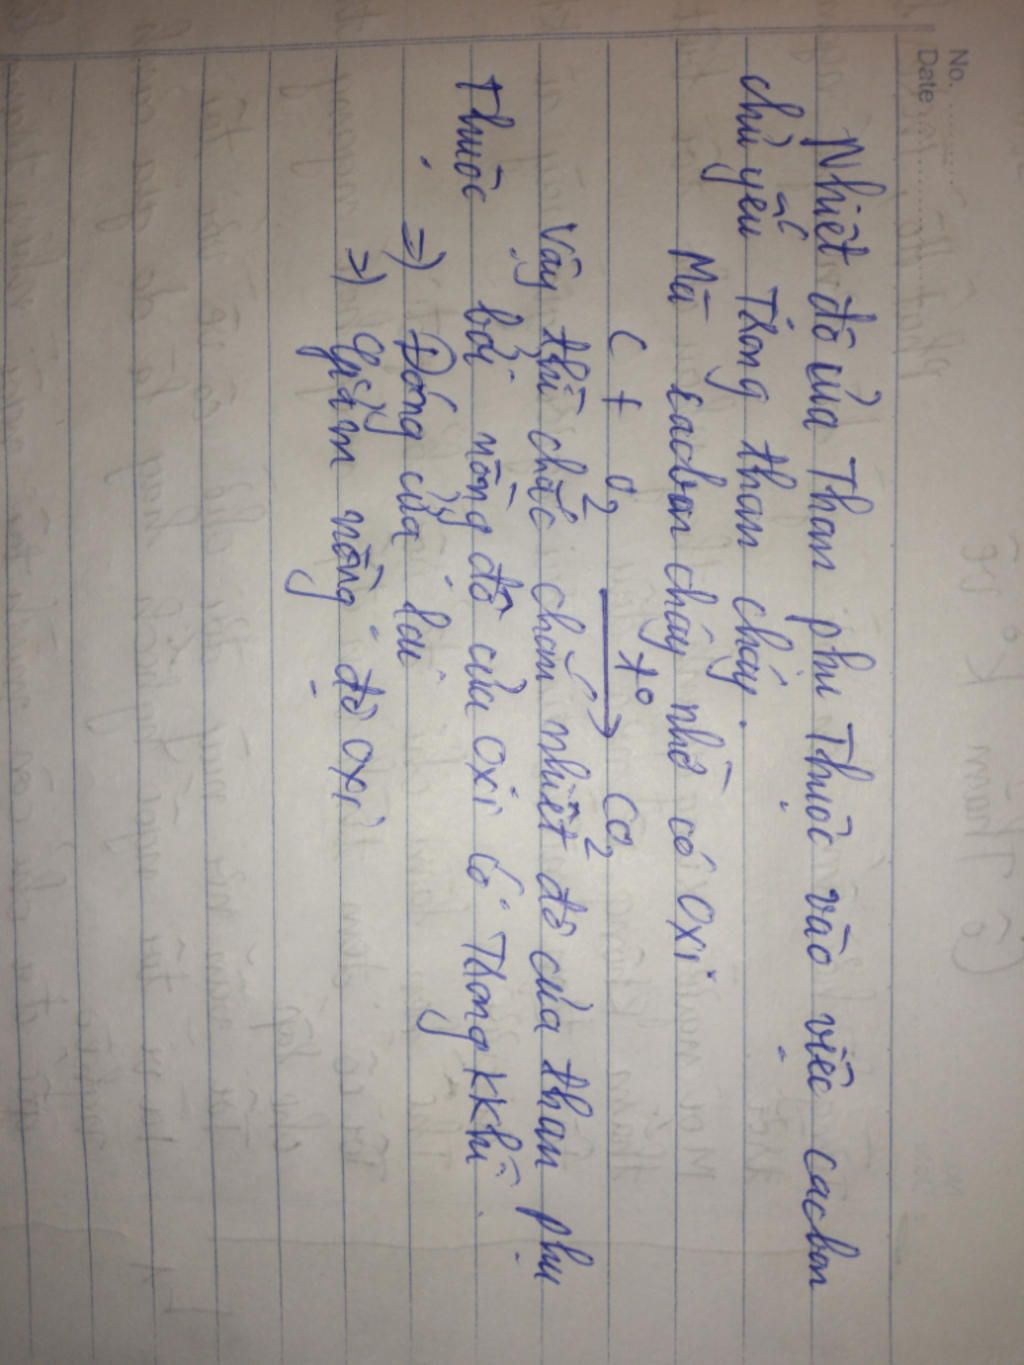 No. ..........
Date ..........
Nhiệt độ của Than phụ Thuộc vào việc cacbon
chủ yếu Trong than cháy.
Mà cacbon cháy nhờ có Oxi
C + O2 → CO2
t°
Vậy thì chắc chắn nhiệt độ của than phụ
Thuộc bởi nồng độ của Oxi có Trong KKhí.
=> Đóng cửa lại
=> Giảm nồng độ Oxi